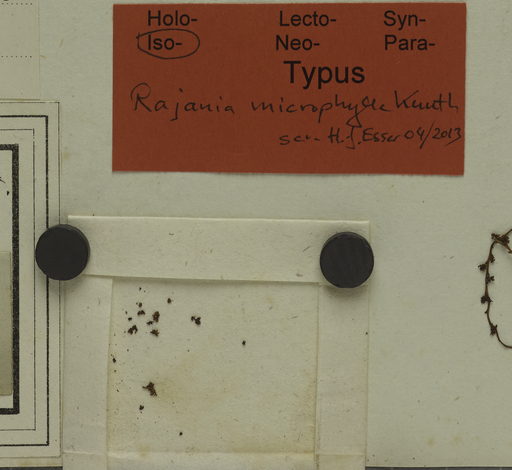 Holo- Lecto- Syn-
Iso- Neo- Para-
Typus
Rajania microphylla Kunth
scr. H.-J. Esser 04/2013